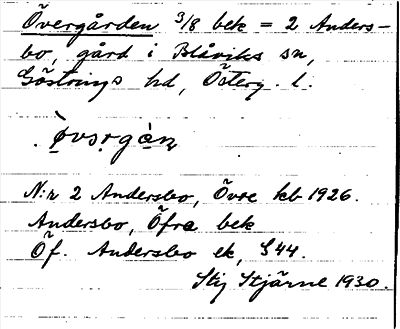 Övergården 3/8 bek = 2 Anders-
bo, gård i Blåviks sn,
Göstrings hd, Österg. l.
N:r 2 Andersbo, Övre kb 1926.
Andersbo, Öfra bek
Öf. Andersbo ek, S44.
Stig Stjärne 1930.